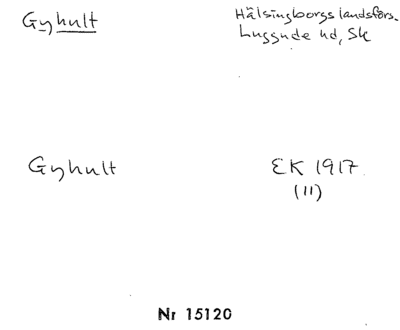 Gyhult
Hälsingborgs landsförs.
Luggude hd, Sk
Gyhult
EK 1917
(II)
Nr 15120